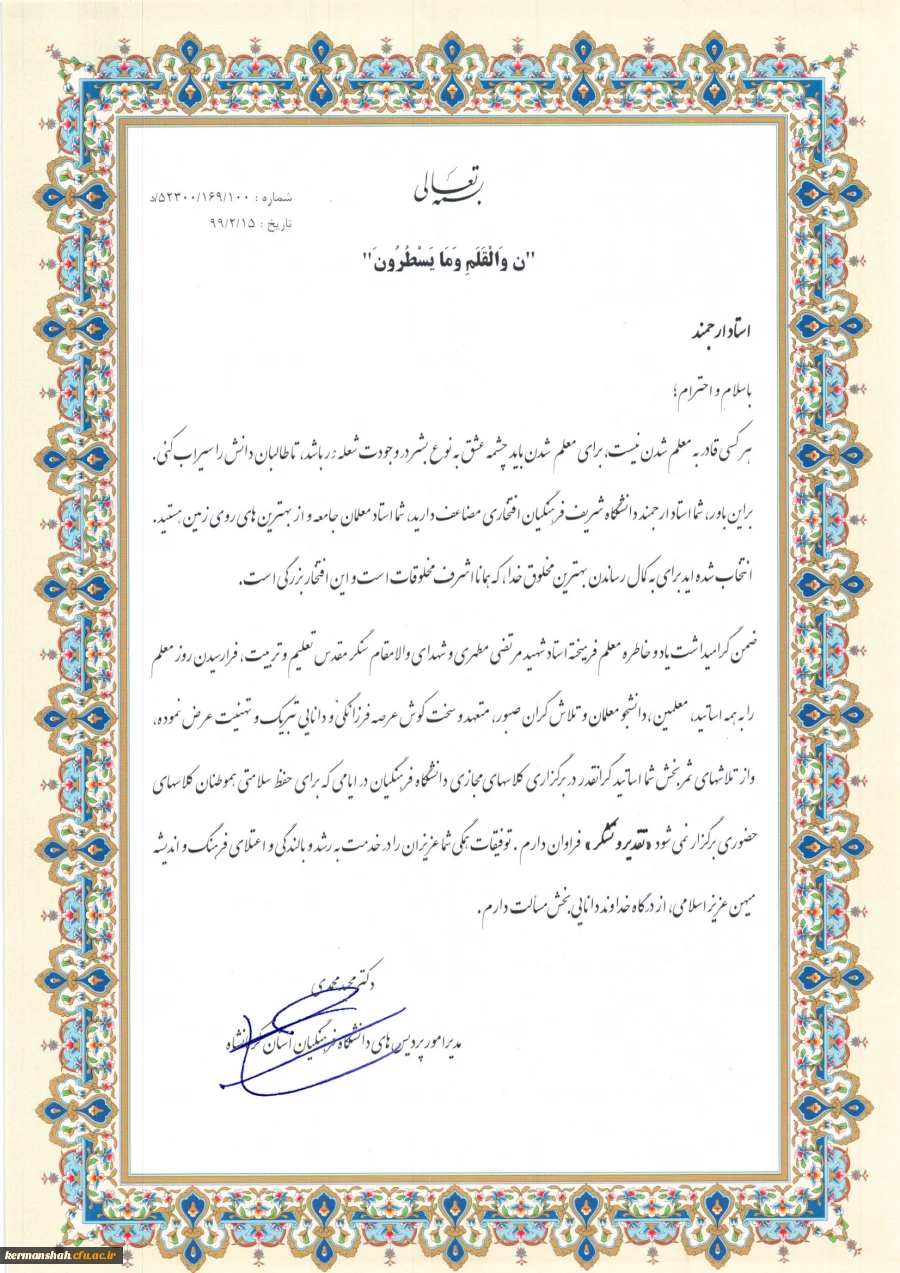 بسمه تعالی
شماره : ۵۲۳۰۰/۱۶۹/۱۰۰/د
تاریخ : ۹۹/۲/۱۵
"ن وَالْقَلَمِ وَمَا يَسْطُرُونَ"
استاد ارجمند
با سلام و احترام؛
هر کسی قادر به معلم شدن نیست، برای معلم شدن باید چشمه عشق به نوع بشر در وجودت شعله زر باشد، تا طالبان دانش را سیراب کنی.
براین باور، شما استاد ارجمند دانشگاه شریف فرهنگیان افتخاری مضاعف دارید، شما استاد معلمان جامعه و از بهترین های روی زمین هستید.
انتخاب شده اید برای به کمال رساندن بهترین مخلوق خدا، که همانا اشرف مخلوقات است و این افتخار بزرگی است.
ضمن گرامیداشت یاد و خاطره معلم فرهیخته استاد شهید مرتضی مطهری و شهدای والامقام سنگر مقدس تعلیم و تربیت، فرارسیدن روز معلم
را به همه اساتید، معلمین، دانشجو معلمان و تلاش گران صبور، متعهد و سخت کوش عرصه فرزانگی و دانایی تبریک و تهنیت عرض نموده،
واز تلاشهای ثمربخش شما اساتید گرانقدر در برگزاری کلاسهای مجازی دانشگاه فرهنگیان در ایامی که برای حفظ سلامتی هموطنان کلاسهای
حضوری برگزار نمی شود «تقدیر و تشکر» فراوان دارم . توفیقات همگی شما عزیزان را در خدمت به رشد و بالندگی و اعتلای فرهنگ و اندیشه
میهن عزیز اسلامی، از درگاه خداوند دانایی بخش مسألت دارم.
دکتر مجید محمدی
مدیر امور پردیس های دانشگاه فرهنگیان استان کرمانشاه
kermanshah.cfu.ac.ir